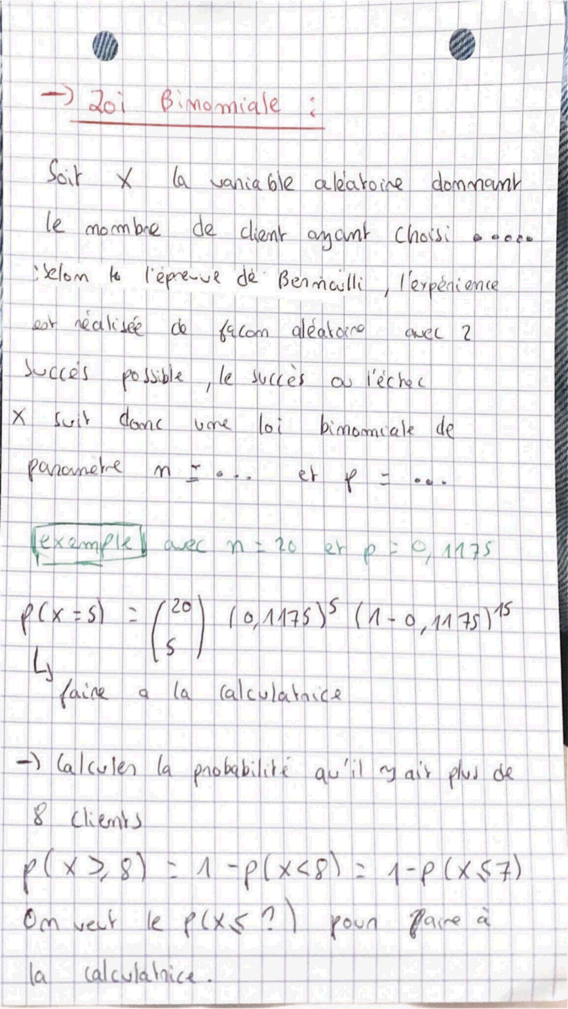 → Loi Binomiale :
Soit X la variable aléatoire donnant
le nombre de client ayant choisi .....
selon la l'épreuve de Bernoulli, l'expérience
est réalisée de façon aléatoire avec 2
succès possible, le succès ou l'échec
X suit donc une loi binomiale de
paramètre n = ... et p = ...
exemple avec n = 20 et p = 0,1175
p(X=5) = (20 5) (0,1175)^5 (1-0,1175)^15
↳ faire a la calculatrice
→ Calculer la probabilité qu'il y ait plus de
8 clients
p(X≥8) = 1-p(X<8) = 1-p(X≤7)
On veut le p(X≤?) pour faire à
la calculatrice.